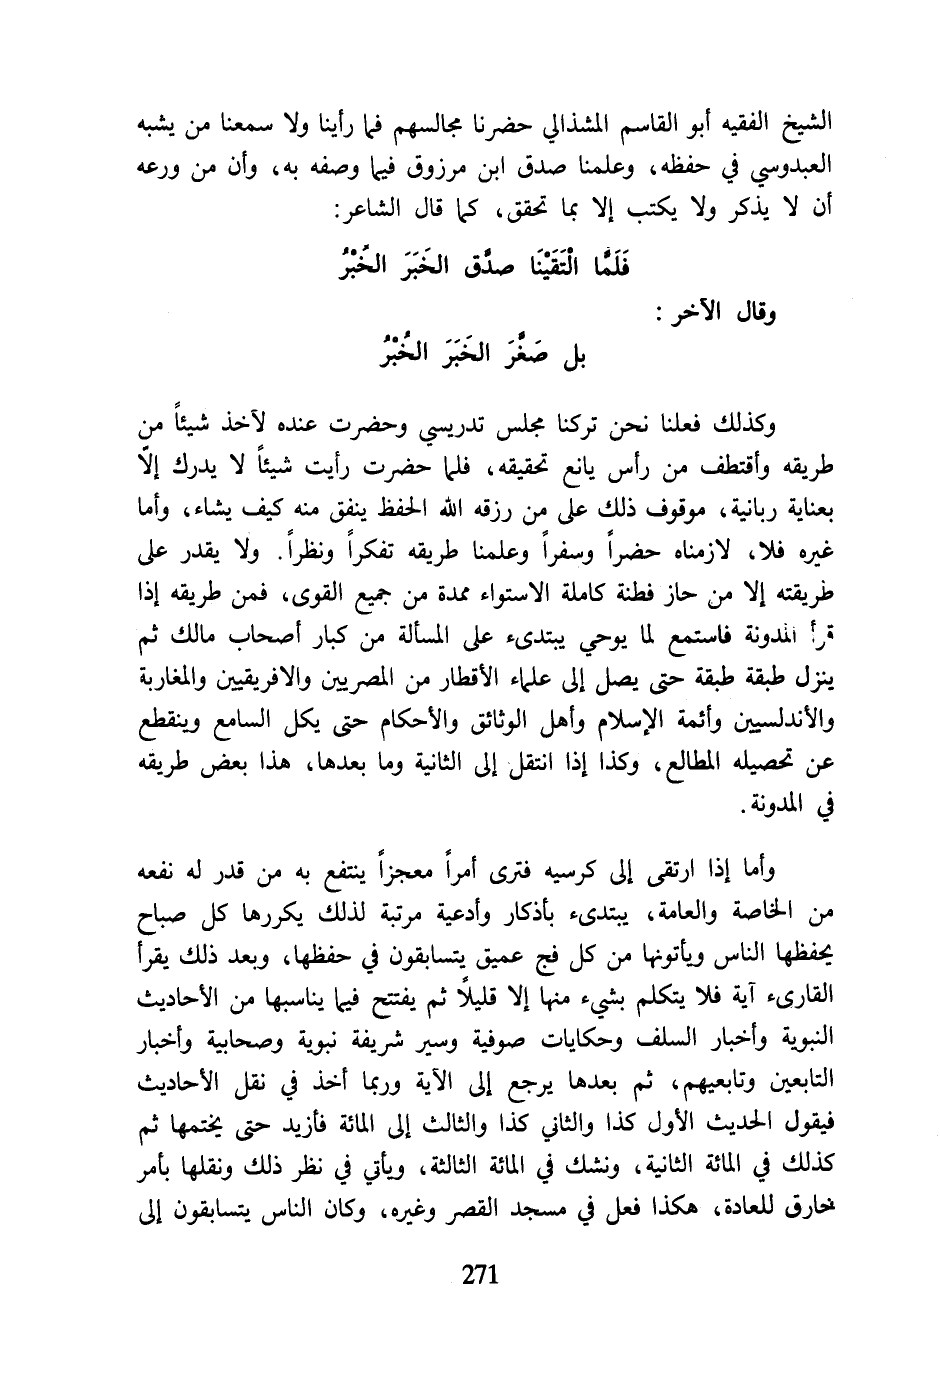 الشيخ الفقيه أبو القاسم المشذالي حضرنا مجالسهم فما رأينا ولا سمعنا من يشبه
العبدوسي في حفظه، وعلمنا صدق ابن مرزوق فيما وصفه به، وأن من ورعه
أن لا يذكر ولا يكتب إلا بما تحقق، كما قال الشاعر:
فَلَمَّا الْتَقَيْنَا صدَّق الخَبَرَ الخُبْرُ
وقال الآخر :
بل صَغَّرَ الخَبَرَ الخُبْرُ
وكذلك فعلنا نحن تركنا مجلس تدريسي وحضرت عنده لآخذ شيئاً من
طريقه وأقتطف من رأس يانع تحقيقه، فلما حضرت رأيت شيئاً لا يدرك إلاّ
بعناية ربانية، موقوف ذلك على من رزقه الله الحفظ ينفق منه كيف يشاء، وأما
غيره فلا، لازمناه حضراً وسفراً وعلمنا طريقه تفكراً ونظراً. ولا يقدر على
طريقته إلا من حاز فطنة كاملة الاستواء ممدة من جميع القوى، فمن طريقه إذا
قرأ المدونة فاستمع لما يوحي يبتدىء على المسألة من كبار أصحاب مالك ثم
ينزل طبقة طبقة حتى يصل إلى علماء الأقطار من المصريين والافريقيين والمغاربة
والأندلسيين وأئمة الإسلام وأهل الوثائق والأحكام حتى يكل السامع وينقطع
عن تحصيله المطالع، وكذا إذا انتقل إلى الثانية وما بعدها، هذا بعض طريقه
في المدونة.
وأما إذا ارتقى إلى كرسيه فترى أمراً معجزاً ينتفع به من قدر له نفعه
من الخاصة والعامة، يبتدىء بأذكار وأدعية مرتبة لذلك يكررها كل صباح
يحفظها الناس ويأتونها من كل فج عميق يتسابقون في حفظها، وبعد ذلك يقرأ
القارىء آية فلا يتكلم بشيء منها إلا قليلاً ثم يفتتح فيما يناسبها من الأحاديث
النبوية وأخبار السلف وحكايات صوفية وسير شريفة نبوية وصحابية وأخبار
التابعين وتابعيهم، ثم بعدها يرجع إلى الآية وربما أخذ في نقل الأحاديث
فيقول الحديث الأول كذا والثاني كذا والثالث إلى المائة فأزيد حتى يختمها ثم
كذلك في المائة الثانية، ونشك في المائة الثالثة، ويأتي في نظر ذلك ونقلها بأمر
خارق للعادة، هكذا فعل في مسجد القصر وغيره، وكان الناس يتسابقون إلى
271